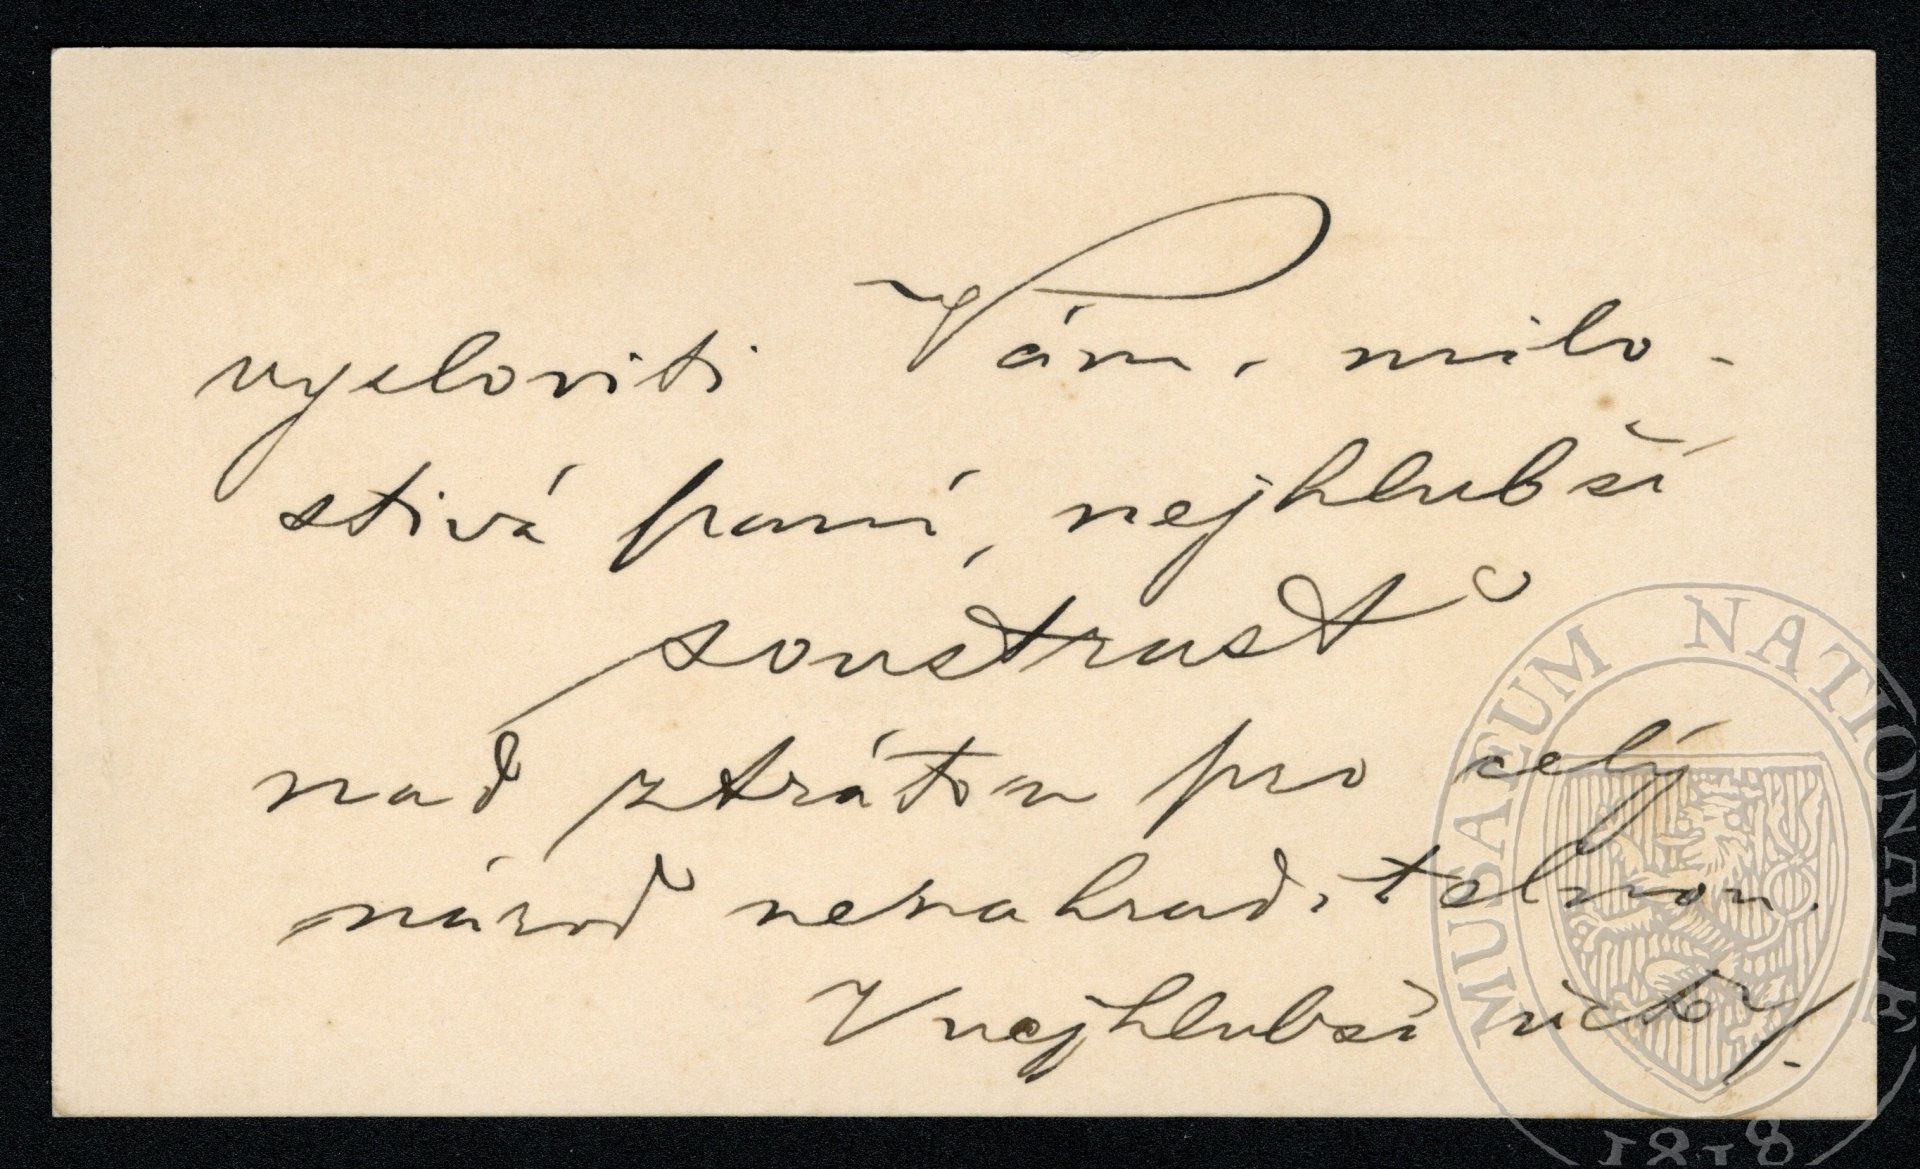 vysloviti Vám, milo-
stivá paní, nejhlubší
soustrasť
nad ztrátou pro celý
národ nenahraditelnou.
V nejhlubší úctě
MUSAEUM NATIONALE
1818